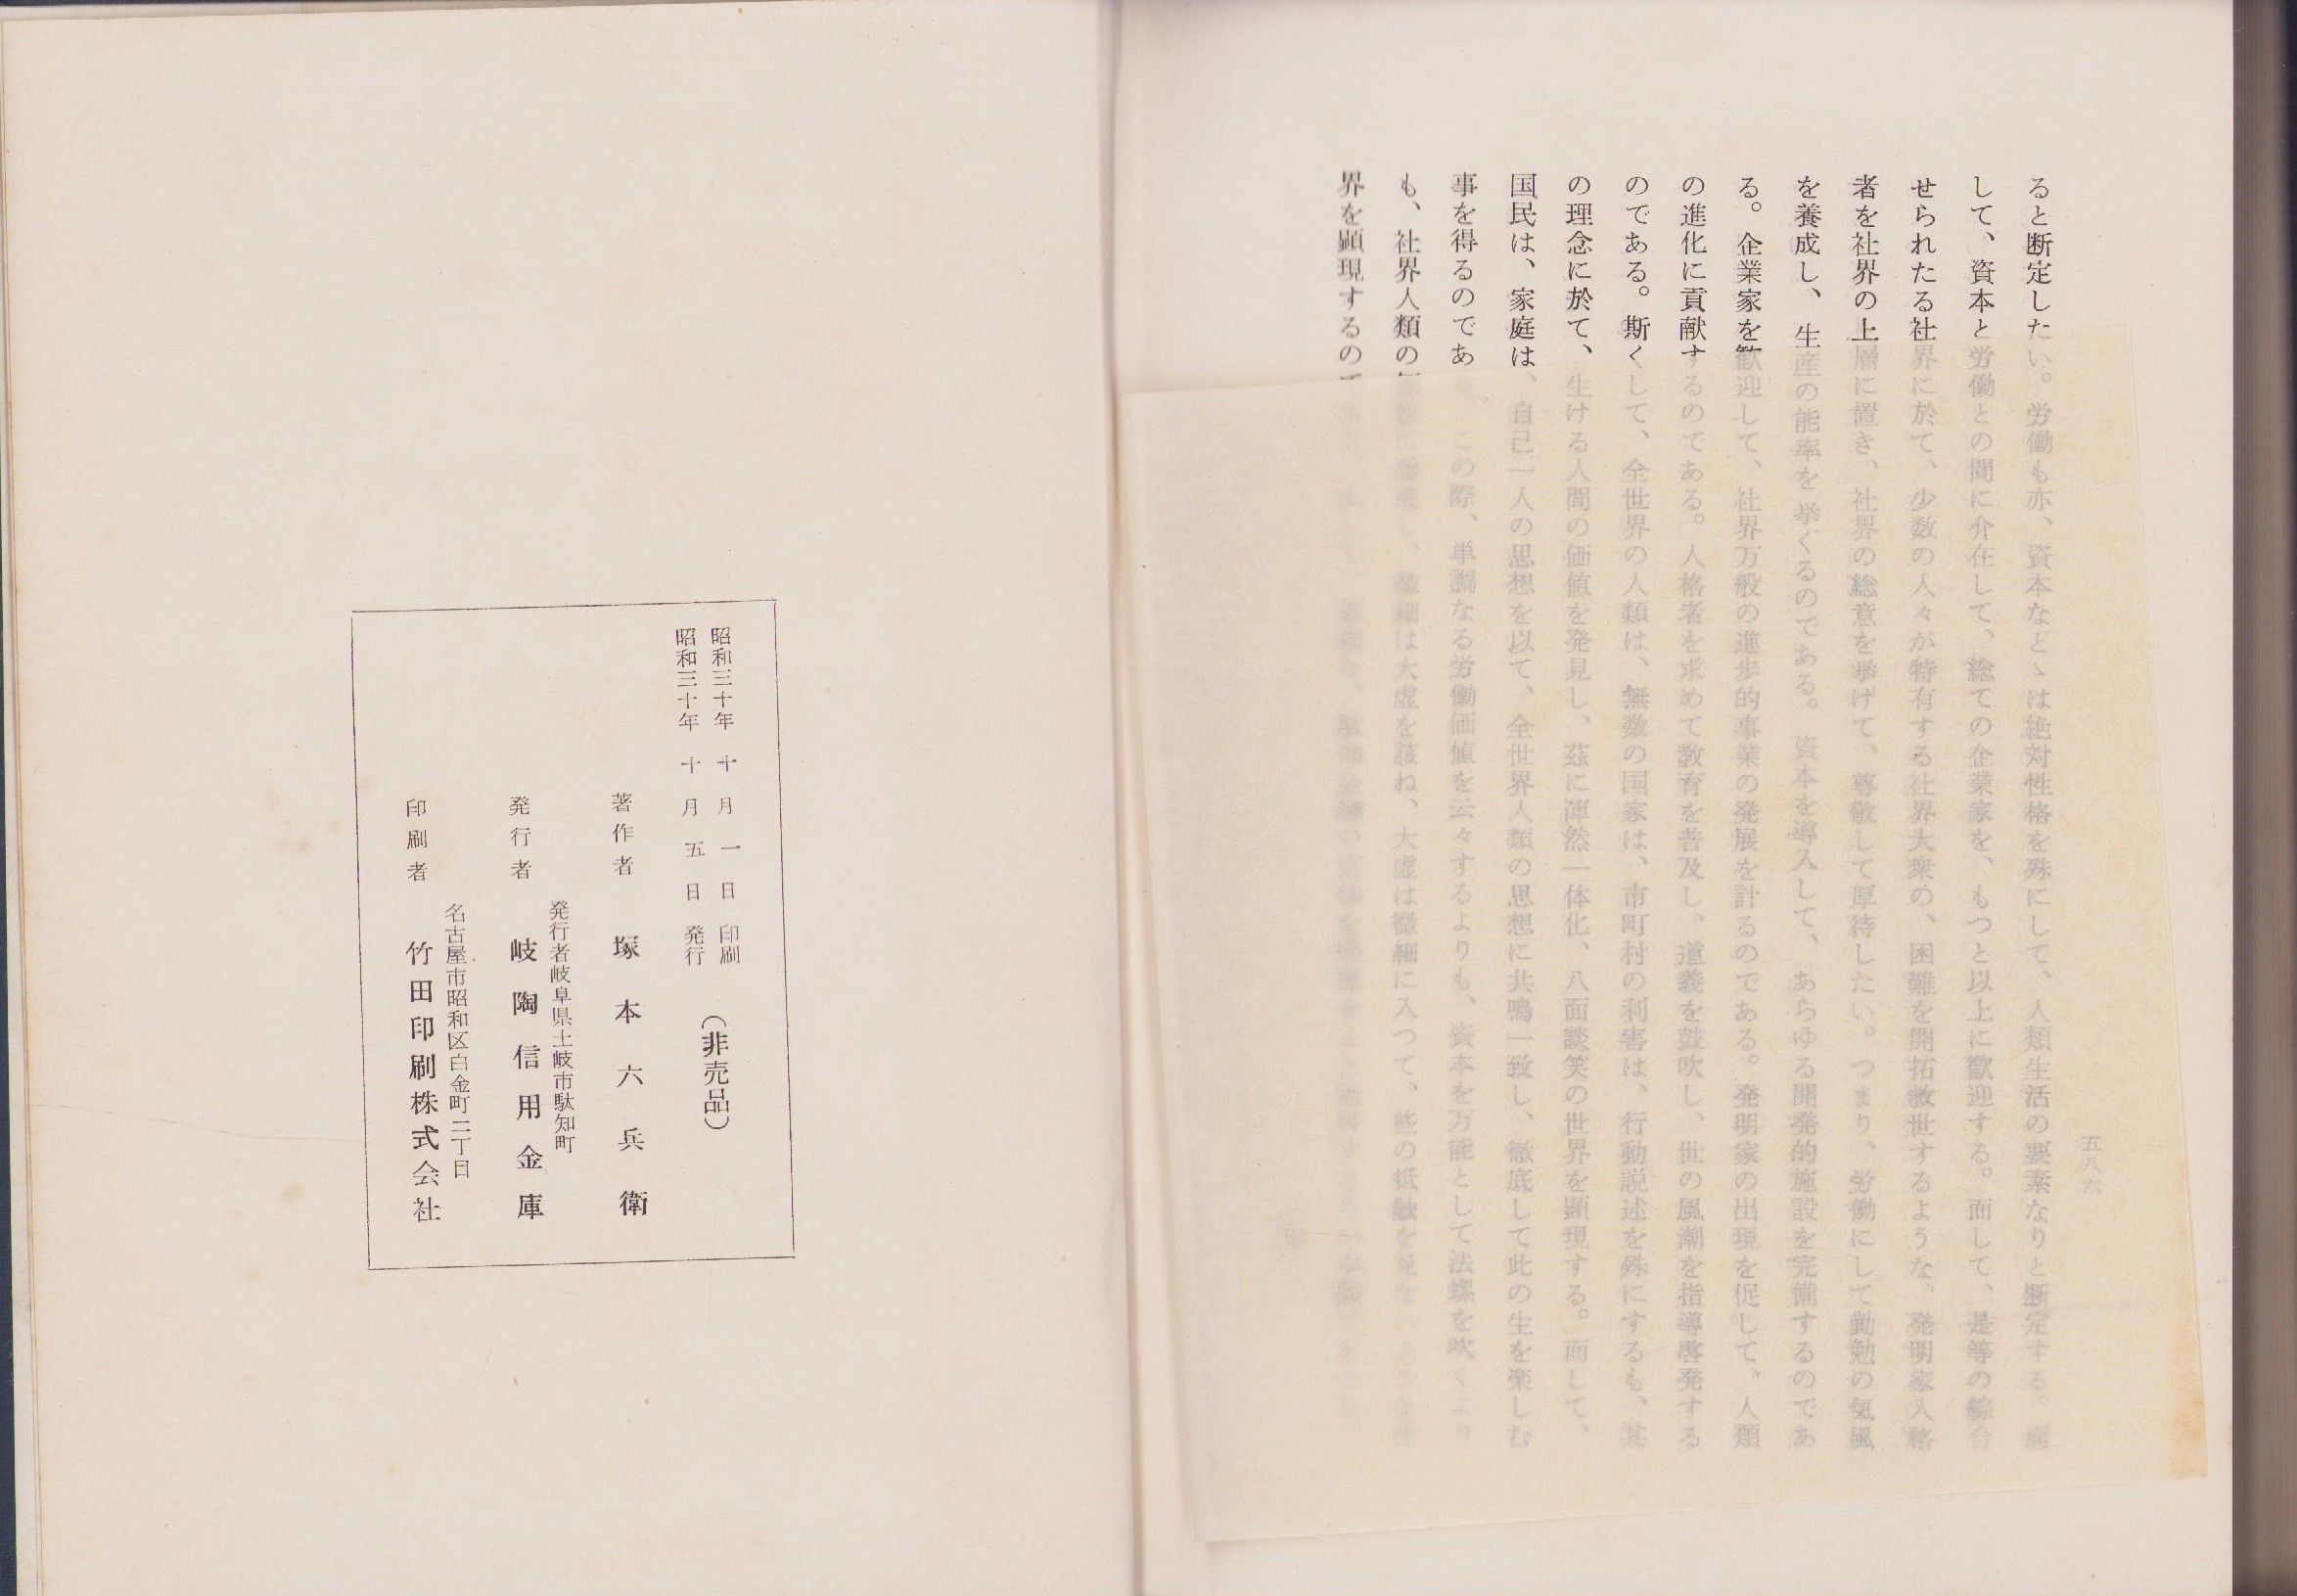 ると断定したい。労働も亦、資本などゝは絶対性格を殊にして、人類生活の要素なりと断定する。而
して、資本と労働との間に介在して、総ての企業家を、もつと以上に歓迎する。而して、是等の綜合
せられたる社界に於て、少数の人々が特有する社界大衆の、困難を開拓救世するような、発明家人格
者を社界の上層に置き、社界の総意を挙げて、尊敬して厚待したい。つまり、労働にして勤勉の気風
を養成し、生産の能率を挙ぐるのである。資本を導入して、あらゆる開発的施設を完備するのであ
る。企業家を歓迎して、社界万般の進歩的事業の発展を計るのである。発明家の出現を促して、人類
の進化に貢献するのである。人格者を求めて教育を普及し、道義を鼓吹し、世の風潮を指導啓発する
のである。斯くして、全世界の人類は、無数の国家は、市町村の利害は、行動説述を殊にするも、其
の理念に於て、生ける人間の価値を発見し、茲に渾然一体化、八面談笑の世界を顕現する。而して、
国民は、家庭は、自己一人の思想を以て、全世界人類の思想に共鳴一致し、徹底して此の生を楽しむ
事を得るのであ この際、単調なる労働価値を云々するよりも、資本を万能として法螺を吹くより
も、社界人類の 微細は大虚を該ね、大虚は微細に入つて、些の抵触を見
界を顕現するの
五八六
昭和三十年 十月 一日 印刷
昭和三十年 十月 五日 発行
(非売品)
著作者 塚本六兵衛
発行者岐阜県土岐市駄知町
発行者 岐陶信用金庫
名古屋市昭和区白金町二丁目
印刷者 竹田印刷株式会社